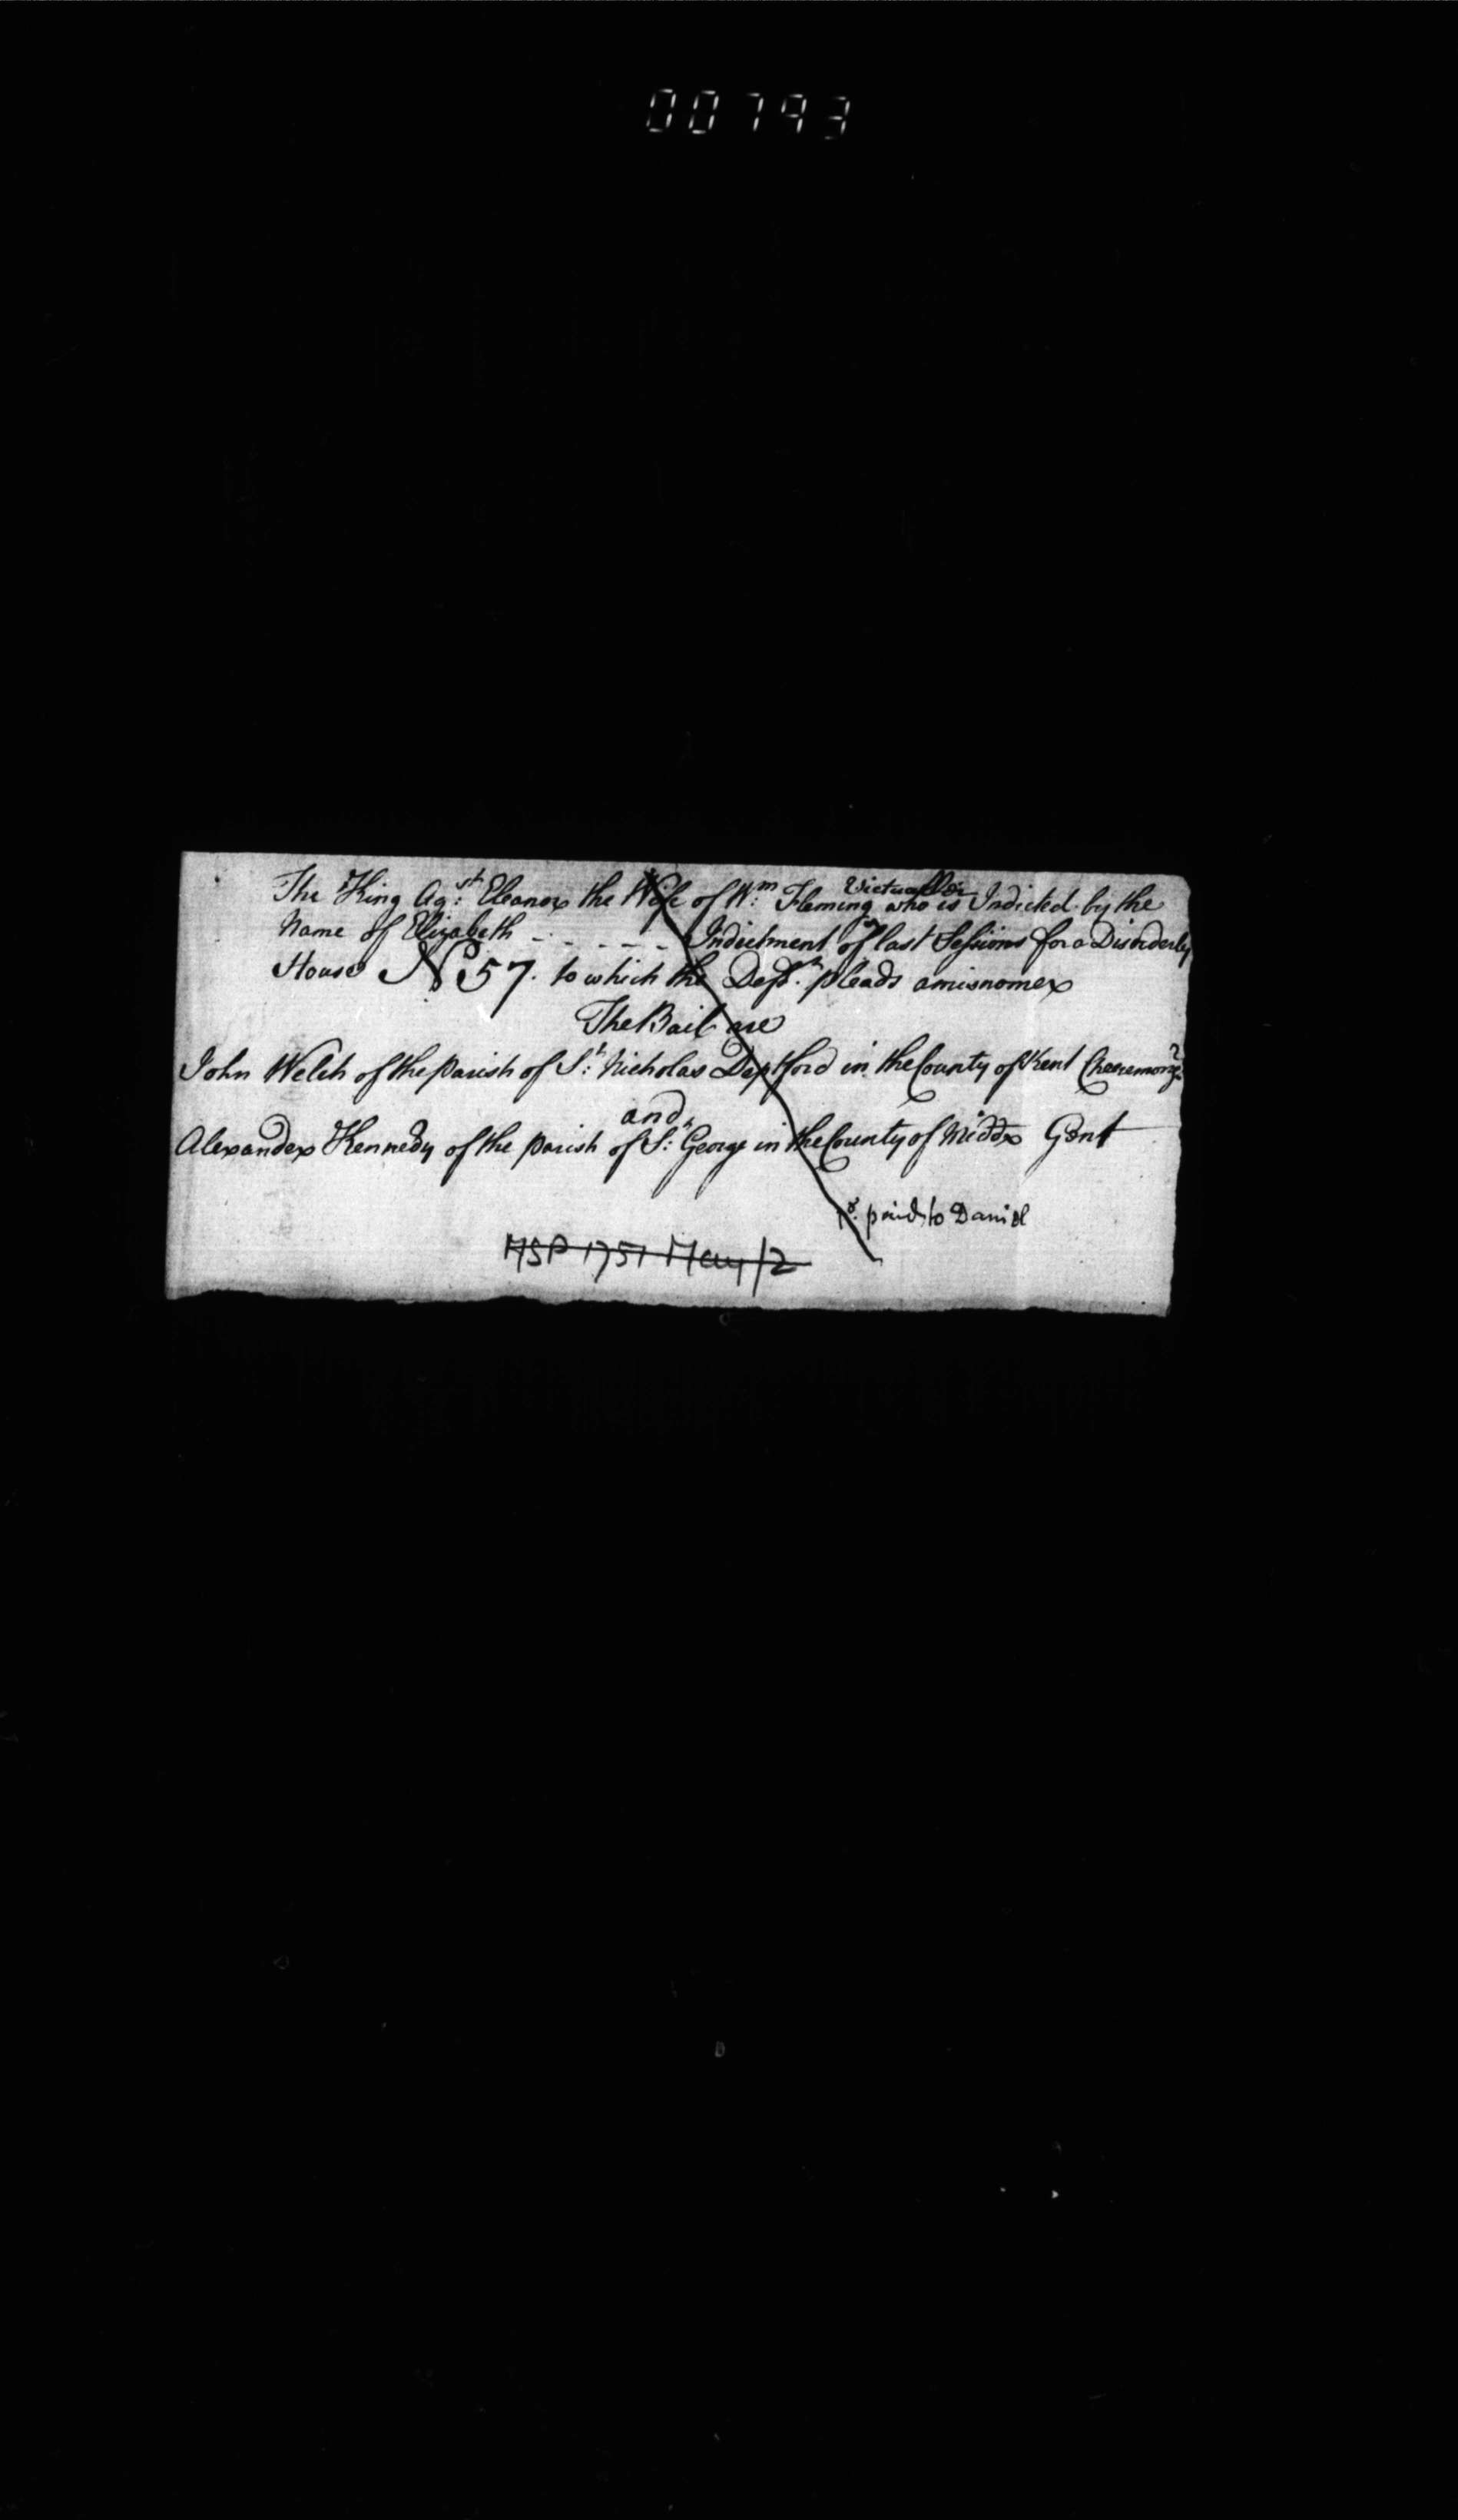 00793
The King Agst: Eleanor the Wife of Wm: Fleming Victualler who is Indicted by the
Name of Elizabeth - - - - - - Indictment of last Sessions for a Disorderly
House No 57. to which the Deft. pleads a misnomer
The Bail are
John Welch of the parish of St: Nicholas Deptford in the County of Kent Cheesemongr
and
Alexander Kennedy of the parish of St: George in the County of Middx Gent
1s. paid to Daniel
MSP 1751 May/2